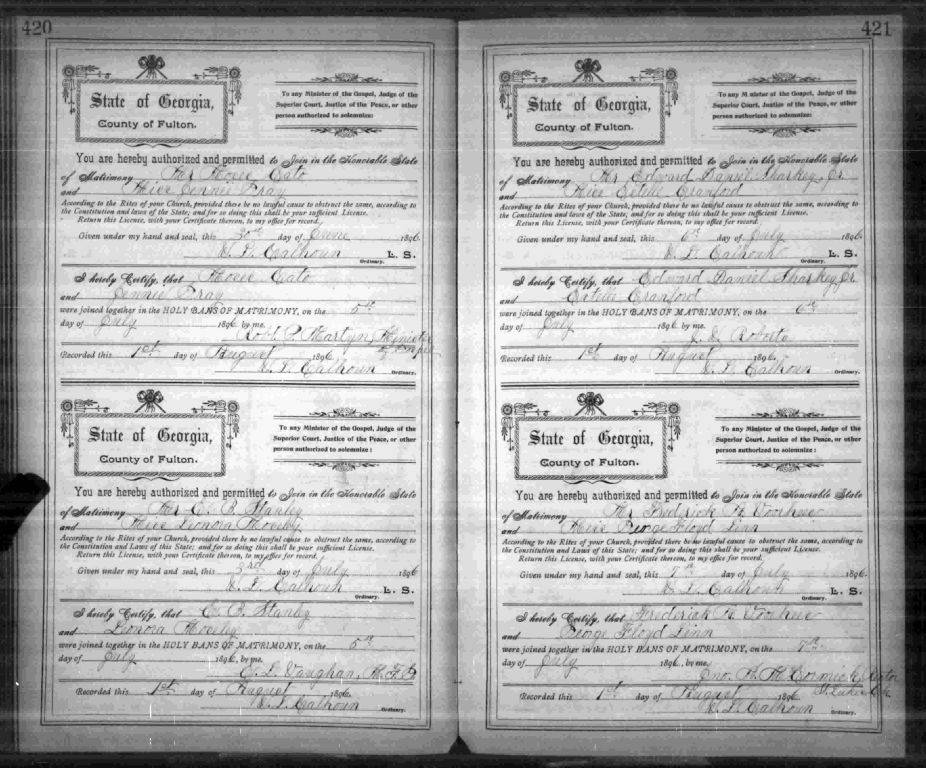 420
State of Georgia,
County of Fulton.
To any Minister of the Gospel, Judge of the
Superior Court, Justice of the Peace, or other
person authorized to solemnize:
You are hereby authorized and permitted to Join in the Honorable State
of Matrimony Mr Cato
and Miss Jennie Gray
According to the Rites of your Church, provided there be no lawful cause to obstruct the same, according to
the Constitution and laws of the State; and for so doing this shall be your sufficient License.
Return this License, with your Certificate thereon, to my office for record.
Given under my hand and seal, this 30th day of June 1896
W. L. Calhoun L. S.
Ordinary.
I hereby Certify, that Cato
and Jennie Gray
were joined together in the HOLY BANS OF MATRIMONY, on the 5th
day of July 1896 by me.
Robt. P. Martyn, Minister
of Gospel
Recorded this 1st day of August 1896.
W. L. Calhoun Ordinary.
State of Georgia,
County of Fulton.
To any Minister of the Gospel, Judge of the
Superior Court, Justice of the Peace, or other
person authorized to solemnize:
You are hereby authorized and permitted to Join in the Honorable State
of Matrimony Mr B. Stanley
and Miss Leonora Mosely
According to the Rites of your Church, provided there be no lawful cause to obstruct the same, according to
the Constitution and Laws of this State; and for so doing this shall be your sufficient License.
Return this License, with your Certificate thereon, to my office for record.
Given under my hand and seal, this 3rd day of July 1896
W. L. Calhoun L. S.
Ordinary.
I hereby Certify, that B. Stanley
and Leonora Mosely
were joined together in the HOLY BANS OF MATRIMONY, on the 5th
day of July 1896, by me.
E. L. Vaughan,
Recorded this 1st day of August 1896.
W. L. Calhoun
Ordinary.
421
State of Georgia,
County of Fulton.
To any Minister of the Gospel, Judge of the
Superior Court, Justice of the Peace, or other
person authorized to solemnize:
You are hereby authorized and permitted to Join in the Honorable State
of Matrimony Mr Edward Daniel Sharkey Jr.
and Miss Estelle Cranford
According to the Rites of your Church, provided there be no lawful cause to obstruct the same, according to
the Constitution and laws of the State; and for so doing this shall be your sufficient License.
Return this License, with your Certificate thereon, to my office for record.
Given under my hand and seal, this 6th day of July 1896.
W. L. Calhoun L. S.
Ordinary.
I hereby Certify, that Edward Daniel Sharkey Jr.
and Estelle Cranford
were joined together in the HOLY BANS OF MATRIMONY, on the 6th
day of July 1896 by me.
Roberts
Recorded this 1st day of August 1896.
W. L. Calhoun
Ordinary.
State of Georgia,
County of Fulton.
To any Minister of the Gospel, Judge of the
Superior Court, Justice of the Peace, or other
person authorized to solemnize:
You are hereby authorized and permitted to Join in the Honorable State
of Matrimony Mr Frederick Voorhees
and Miss George Floyd Linn
According to the Rites of your Church, provided there be no lawful cause to obstruct the same, according to
the Constitution and Laws of this State; and for so doing this shall be your sufficient License.
Return this License, with your Certificate thereon, to my office for record.
Given under my hand and seal, this 7th day of July 1896.
W. L. Calhoun L. S.
Ordinary.
I hereby Certify, that Frederick Voorhees
and George Floyd Linn
were joined together in the HOLY BANS OF MATRIMONY, on the 7th
day of July 1896, by me.
Jno. McCormick, Rector
St Lukes
Recorded this 1st day of August 1896
W. L. Calhoun Ordinary.